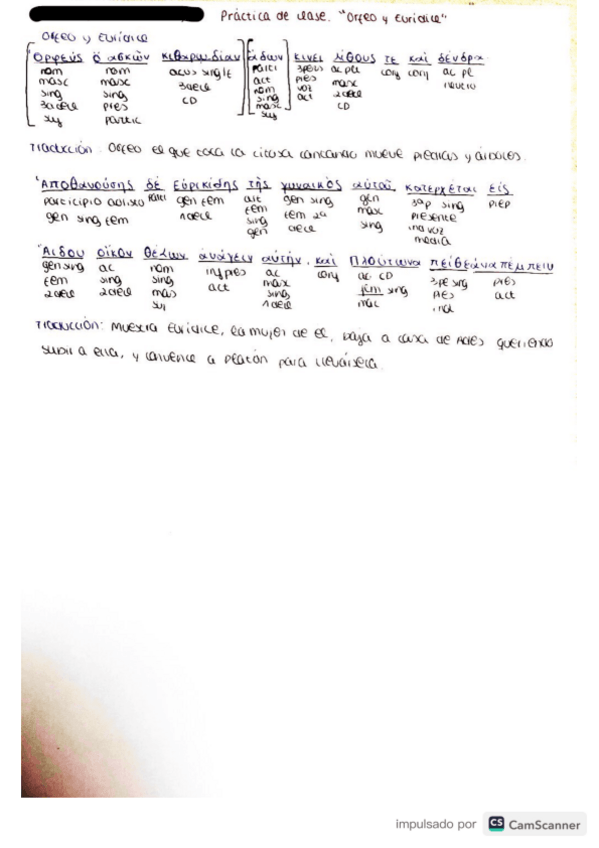 Práctica de clase. "Orfeo y Eurídice"
Orfeo y Eurídice
Ὀρφεὺς ὁ ἀσκῶν κιθαρωδίαν ἄδων κινεῖ λίθους τε καὶ δένδρα
nom nom acus single parti 3pers ac plu conj conj ac pl
masc masc 3decl act pres masc neutro
sing sing CD nom voz 2decl
3decl pres sing act CD
suj partic masc
suj
Traducción: Orfeo el que toca la cítara cantando mueve piedras y árboles.
Ἀποθανούσης δὲ Εὐρικίδης τῆς γυναικὸς αὐτοῦ, κατέρχεται εἰς
participio aoristo parti gen fem art gen sing gen 3ap sing prep
gen sing fem 1decl fem fem 3a masc presente
sing decl sing ind voz
gen media
Ἄιδου οἶκον θέλων ἀνάγειν αὐτήν, καὶ Πλούτωνα πείθει ἀναπέμπειν
gen sing ac nom inf pres ac conj ac CD 3pe sing pres
fem sing sing act max fem sing pres act
2decl 2decl mas sing masc ind
suj 1decl
Traducción: Muerta Eurídice, la mujer de el, baja a casa de Ades queriendo
subir a ella, y convence a Platón para llevársela.
impulsado por CS CamScanner